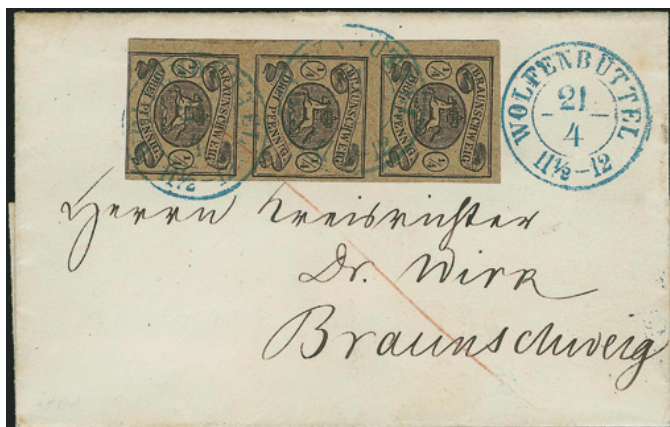 BRAUNSCHWEIG
DREI PFENNIG
¼
¼
BRAUNSCHWEIG
DREI PFENNIG
¼
¼
BRAUNSCHWEIG
DREI PFENNIG
¼
¼
WOLFENBÜTTEL
21
4
11½-12
11½
Herrn Kreisrichter
Dr. Wirk
Braunschweig